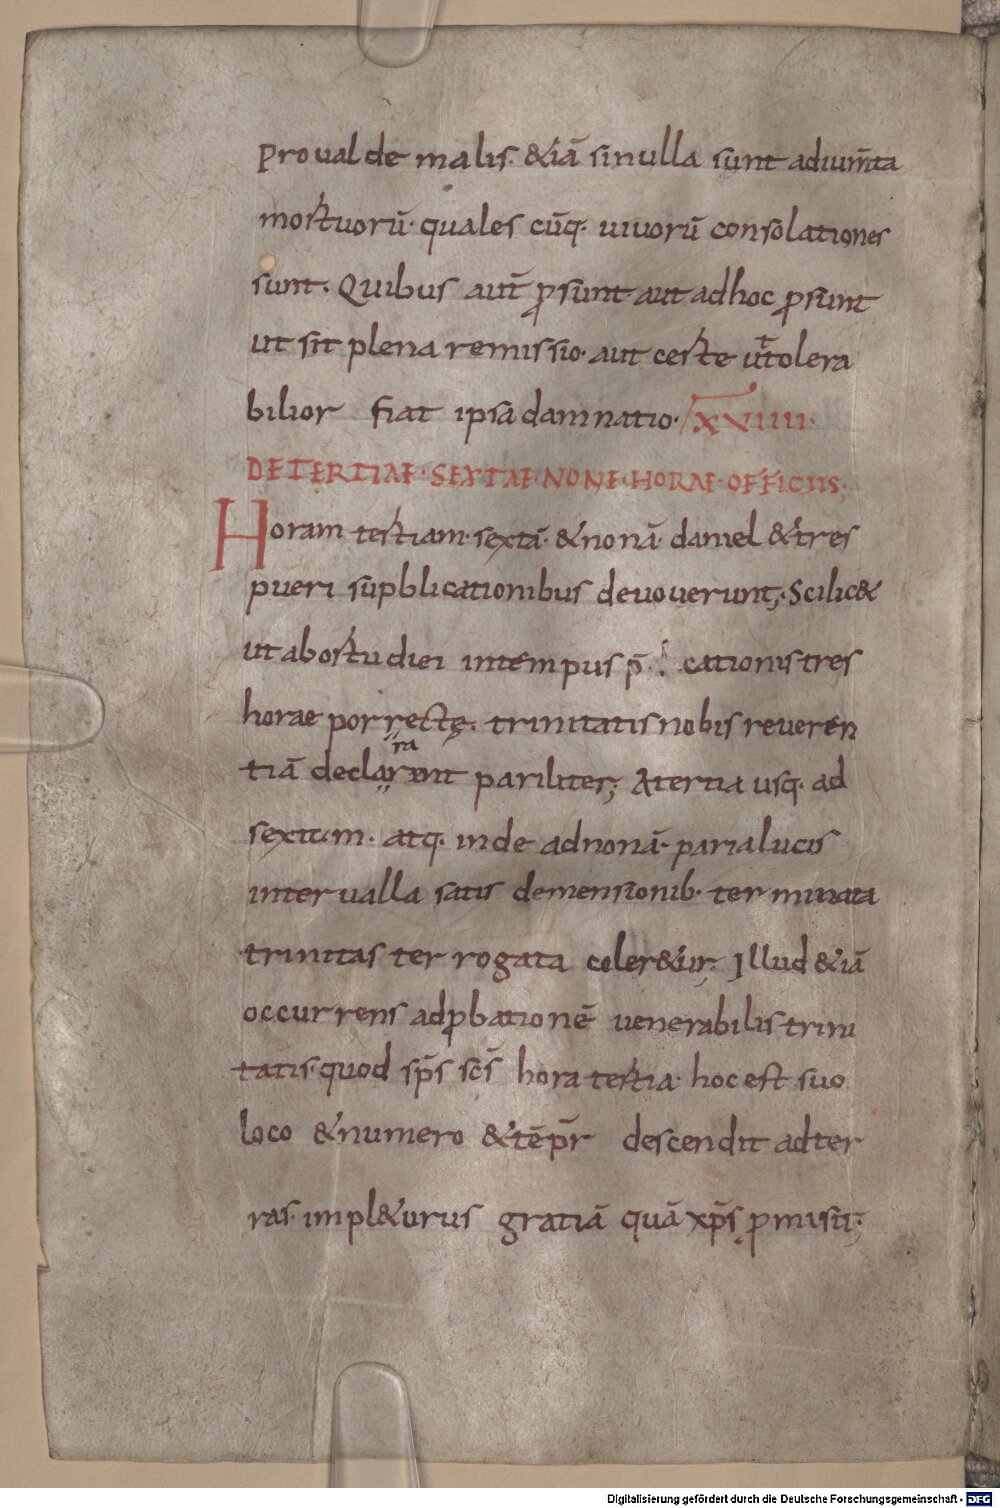 pro valde malis. &iā sinulla sunt adium̄ta
mortuorū. quales cūq. uiuorū consolationes
sunt. Quibus aut̄ ꝓsunt aut adhoc ꝓsunt
ut sit plena remissio. aut certe ut tolera
bilior fiat ipsa damnatio. XXVIIII.
DE TERTIAE. SEXTAE. NONE. HORAE. OFFICIIS;
Horam tertiam. sextā. & nonā. daniel & tres
pueri supblicationibus deuouerunt; Scilic&
ut abortu diei intempus p̄ cationis tres
horae porrectę. trinitatis nobis reueren
tiā declarent pariliter; Atertia usq. ad
ra
sextum. atq. inde adnonā. paria lucis
interualla satis demensionib. terminata
trinitas ter rogata celer&ur; Illud &iā
occurrens adꝓbationē uenerabilis trini
tatis. quod sp̄s sc̄s hora tertia. hoc est suo
loco & numero & tēp̄r descendit adter
ras. impl&urus gratiā quā xp̄s ꝓmisit;
Digitalisierung gefördert durch die Deutsche Forschungsgemeinschaft - DFG